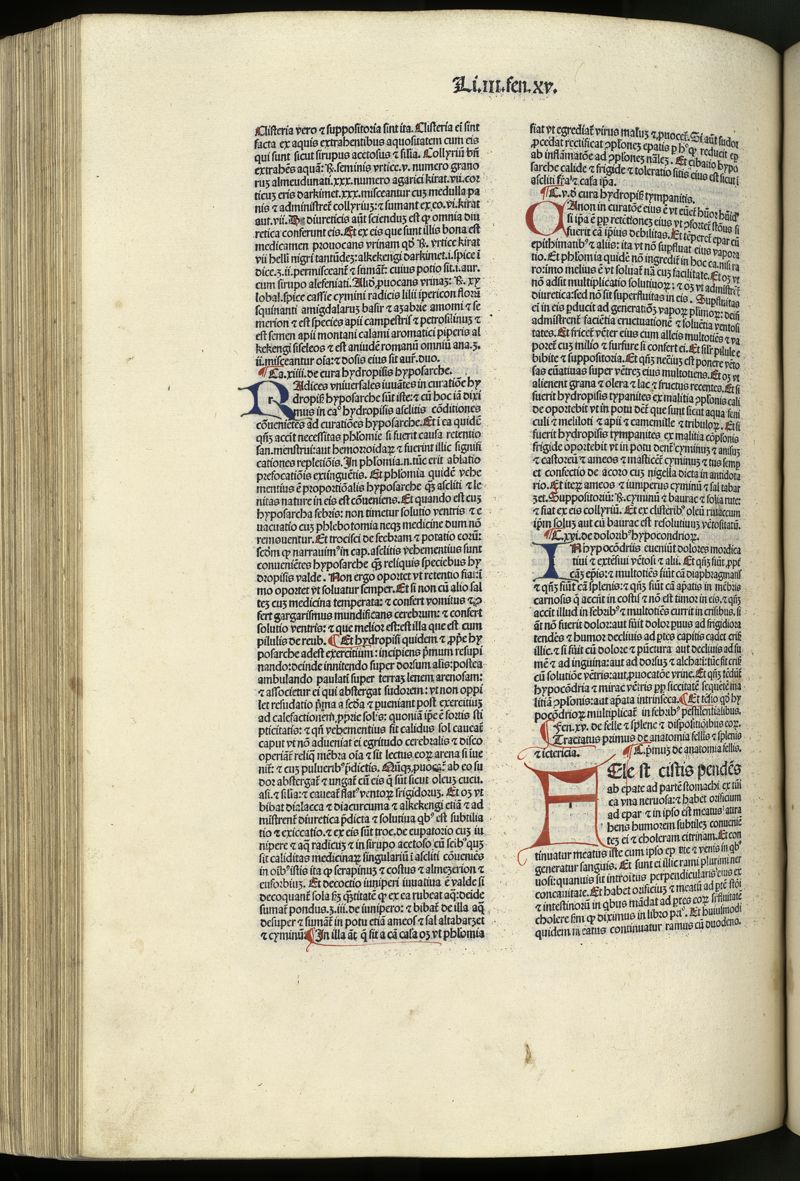 Li.III.fen.xv.
Clisteria vero ⁊ suppositoria sint ita. Clisteria ei sint
facta ex aquis extrahentibus aquositatem cum eis
qui sunt sicut sirupus acetosus ⁊ silia. Collyriũ bñ
extrahẽs aquã: ℞. seminis vrtice.v. numero grano
ruꝫ almeudunati.xxx.numero agarici kirat.vii.cor
ticuꝫ eris darkimet.xxx.misceantur cuꝫ medulla pa
nis ⁊ administret̃ collyriuꝫ: ⁊ sumant ex eo.vi.kirat
aut.vii. De diureticis aũt sciendus est ꝙ omnia diu
retica conferunt eis. Et ex eis que sunt illis bona est
medicamen prouocans vrinam qđ ℞. vrtice kirat
vii helli nigri tantũdeꝫ: alkekengi darkimet.i.spice ĩ
dice.ʒ.ii.permisceant̃ ⁊ sumat̃: cuius potio sit.i.aur.
cum sirupo alefeniati. Aliđ ꝓuocans vrinaꝫ: ℞. xy
lobal.spice cassie cymini radicis lilii ipericon florũ
squinanti amigdalaruꝫ basir ⁊ aʒabrie amomi ⁊ se
merion ⁊ est species apii campestris ⁊ petrosilinuꝫ ⁊
est semen apii montani calami aromatici piperis al
kekengi siseleos ⁊ est aniudẽ romanũ omniũ ana.ʒ.
ii.misceantur oĩa: ⁊ dosis eius sit aur̃.duo.
¶ Ca.xiiii.de cura hydropisis hyposarche.
RAdices vniuersales iuuãtes in curatiõe hy
dropisis hyposarche sũt iste: ⁊ cũ hoc iã dixi
mus in caᵒ hydropisis asclitis cõditiones
cõuenietes ad curatiões hyposarche. Et ĩ ea quidẽ
qñꝫ accit necessitas phlomie si fuerit causa retentio
san.menstrui:aut hemorroidarꝫ ⁊ fuerint illic signifi
cationes repletiõis. In phlomia.n.tũc erit ablatio
prefocatiõis exinguẽtis. Et phlomia quidẽ vehe
mentius ẽ proportiõalis hyposarche qꝫ ascliti ⁊ le
nitas nature in eis est cõueniens. Et quando est cuꝫ
hyposarcha febris: non timetur solutio ventris ⁊ e
uacuatio cuꝫ phlebotomia neqꝫ medicine dum nõ
remouentur. Et trocisci de secbram ⁊ potatio eorũ:
scđm ꝙ narrauimᵒ in cap.asclitis vehementius sunt
conueniẽtes hyposarche qꝫ reliquis speciebus hy
dropisis valde. Non ergo oportet vt retentio fiat:ĩ
mo oportet vt soluatur semper. Et si non cũ alio sal
teʒ cuꝫ medicina temperata: ⁊ confert vomitus ⁊ ꝯ
fert gargarismus mundificans cerebrum: ⁊ confert
solutio ventris: ⁊ que melior est:est illa que est cum
pilulis de reub. ¶ Et hydropisi quidem ⁊ ꝓpe hy
posarche adest exercitium: incipiens primum resupi
nando:deinde innitendo super dorsum alis:postea
ambulando paulati super terraꝫ lenem arenosam:
⁊ associetur ei qui abstergat sudorem: vt non oppi
let resudatio prima a secđa ⁊ ꝓueniant post exercitiuꝫ
ad calefactionem ꝓprie solᵒs: quoniã ipe ẽ fortis sti
pticitatis: ⁊ qñ vehementius sit calidus sol caueat̃
caput vt nõ adueniat ei egritudo cerebralis ⁊ disco
operiat̃ reliqꝫ mẽbra oĩa ⁊ sit lectus eorꝫ arena si iue
nit̃: ⁊ cuꝫ pulueribᵒ ꝓdictis. Nunqꝫ ꝓuocat̃ ab eo su
dor abstergat̃ ⁊ ungat̃ cũ eis q̃ sũt sicut oleuꝫ cucu.
asi.⁊ silia:⁊ caueat̃ flatᵒ ventorꝫ frigidoruꝫ. Et oꝫ vt
bibat dialacca ⁊ diacurcuma ⁊ alkekengi etiã ⁊ ad
mistrent̃ diuretica p̃dicta ⁊ solutiua qbᵒ est subtilia
tio ⁊ exiccatio.⁊ ex eis sũt troc.de eupatorio cuꝫ iu
nipere ⁊ aqꝫ radicuꝫ ⁊ in sirupo acetoso cũ seibᵒquꝫ
sit caliditas medicinarꝫ singulariũ ĩ ascliti cõueniẽs
in oĩbᵒ istis ita ꝙ serapinuꝫ ⁊ costus ⁊ almezerion ⁊
eusorbiuꝫ. Et decoctio iuniperi iuuatiua ẽ valde si
decoquant̃ sola sꝫ q̃titate ꝙ ex ea rubeat aqꝫ:deide
sumat̃ pondus.ʒ.iii.de iunipero: ⁊ bibat̃ de illa aqꝫ
desuper ⁊ sumat̃ in potu etiã ameos ⁊ sal altabarzet
⁊ cyminũ. ¶ In illa añt q̃ sit a cã casa oꝫ vt phlomia
fiat vt egrediat̃ virus maluꝫ ⁊ ꝓuocet̃. Si aũt sudor
ꝓcedat rectificat ꝯplsones epatis
ab inflamatõe ad ꝯplsones nãles. Et cibatio hypo
sarche calide ⁊ frigide ⁊ toleratio sitis eius est sicut ĩ
ascliti
¶ C.v.đ cura hydropisis tympanitis.
CAnon in curatõe eius ẽ vt euet̃ hũor hũiđ
si ipa ẽ ꝑp retẽtionez eius vt ꝯfortet̃ stõs si
fuerit cã ipsius debilitas. Et tẽperet̃ epar cũ
epithimatibᵒ ⁊ aliis: ita vt nõ supfluat eius vapora
tio. Et phlomia quidẽ nõ ingredit̃ in hoc ca.nisi ra
ro:imo melius ẽ vt soluat̃ nã cuꝫ facilitate. Et oꝫ vt
nõ adsit multiplicatio solutiuorꝫ: ⁊ oꝫ vt admistret̃
diuretica:sed nõ sit superfluitas in eis. Supfluitas
ei in eis ꝑducit ad generatiõꝫ vaporꝫ plimorꝫ: deĩñ
admistrent̃ faciẽtia eructuationẽ ⁊ soluẽtia ventosi
tates. Et fricet̃ vẽter eius cum alleis multotiẽs ⁊ va
poret̃ cuꝫ milio ⁊ furfure si confert ei. Et silr̃ pilule e
bibite ⁊ suppositoria. Et qñꝫ necũꝫ est ponere vẽto
sas euãtiuas super vẽtreꝫ eius multotiens. Et oꝫ vt
alienent̃ grana ⁊ olera ⁊ lac ⁊ fructus recentes. Et si
fuerit hydropisis typanites ex malitia ꝯplsonis cali
de oportebit vt in potu det̃ que sunt sicut aqua feni
culi ⁊ meliloti ⁊ apii ⁊ camemille ⁊ tribulorꝫ. Et si
fuerit hydropisis tympanites ex malitia cõplsonis
frigide oportebit vt in potu dent̃ cyminuꝫ ⁊ anisuꝫ
⁊ castoreũ ⁊ ameos ⁊ masticet̃ cyminuꝫ ⁊ tus semp
et confectio de acoro cuꝫ nigella dicta in antidota
rio. Et iterꝫ ameos ⁊ iuniperus cyminũ ⁊ sal tabar
ʒet. Suppositoriũ: ℞. cyminũ ⁊ baurac ⁊ folia rute
⁊ fiat ex eis collyriũ. Et ex clisteribᵒ oleũ rutaceum
ipm soluꝫ aut cũ baurac est resolutiuuꝫ vẽtositatũ.
¶ C.xvi.de doloribᵒ hypocondriorꝫ.
IN hypocõdriis eueniũt dolores mordica
tiui ⁊ extẽsiui vẽtosi ⁊ alii. Et qñꝫ sũt ꝓp̃t̃
cãꝫ epis: ⁊ multotiẽs sũt cũ diaphragmatis
⁊ qñꝫ sũt cã splenis: ⁊ qñꝫ sũt cã aptis in mẽbris
carnosis q̃ accit in costis ⁊ nõ est timor in eis. ⁊ qñꝫ
accit illud in febribᵒ ⁊ multotiẽs currit in crisibus. si
ãt nõ fuerit dolor:aut fuit dolor puus ad frigidiora
tendẽs ⁊ humor decliuis ad ptes capitis cadet crisis
illic. ⁊ si fuit cũ dolore ⁊ pũctura aut decliuis ad su
mẽ ⁊ ad inguina:aut ad dorsuꝫ ⁊ alchati:tũc sit crisis
cũ solutiõe vẽtris:aut ꝓuocatõe vrine. Et qñꝫ tẽdũt
hypocõdria ⁊ mirac vẽtris ꝓp siccitatẽ sequetẽ ma
litiã ꝯplsonis:aut apata intrinseca. ¶ Et tẽsio qđ hy
pocõdriorꝫ multiplicat̃ in febribᵒ pestilentialibus.
¶ Fen.xv. de felle ⁊ splene ⁊ dispositiõibus eorꝫ.
Tractatus primus de anatomia fellis ⁊ splenis
⁊ ictericia. ¶ C.primuꝫ de anatomia fellis.
FEle st cistis pendẽs
ab epate ad partẽ stomachi ex tũi
ca vna neruosa: ⁊ habet orificium
ad epar ⁊ in ipso est meatus attra
hens humorem subtileꝫ conueniẽ
teꝫ ei ⁊ choleram citrinam. Et con
tinuatur meatus iste cum ipso epate ⁊ venis in qbᵒ
generatur sanguis. Et sunt ei illic rami plurimi ner
uosi: quanuis sit introitus perpendicularis eius ex
concauitate. Et habet orificiuꝫ ⁊ meatũ ad ptẽ stõi
⁊ intestinorũ in qbus mãdat ad ptes eorꝫ sufluitatẽ
cholere sm ꝙ diximus in libro priᵒ. Et huiusmodi
quidem meatus continuatur ramus cũ duodeno.